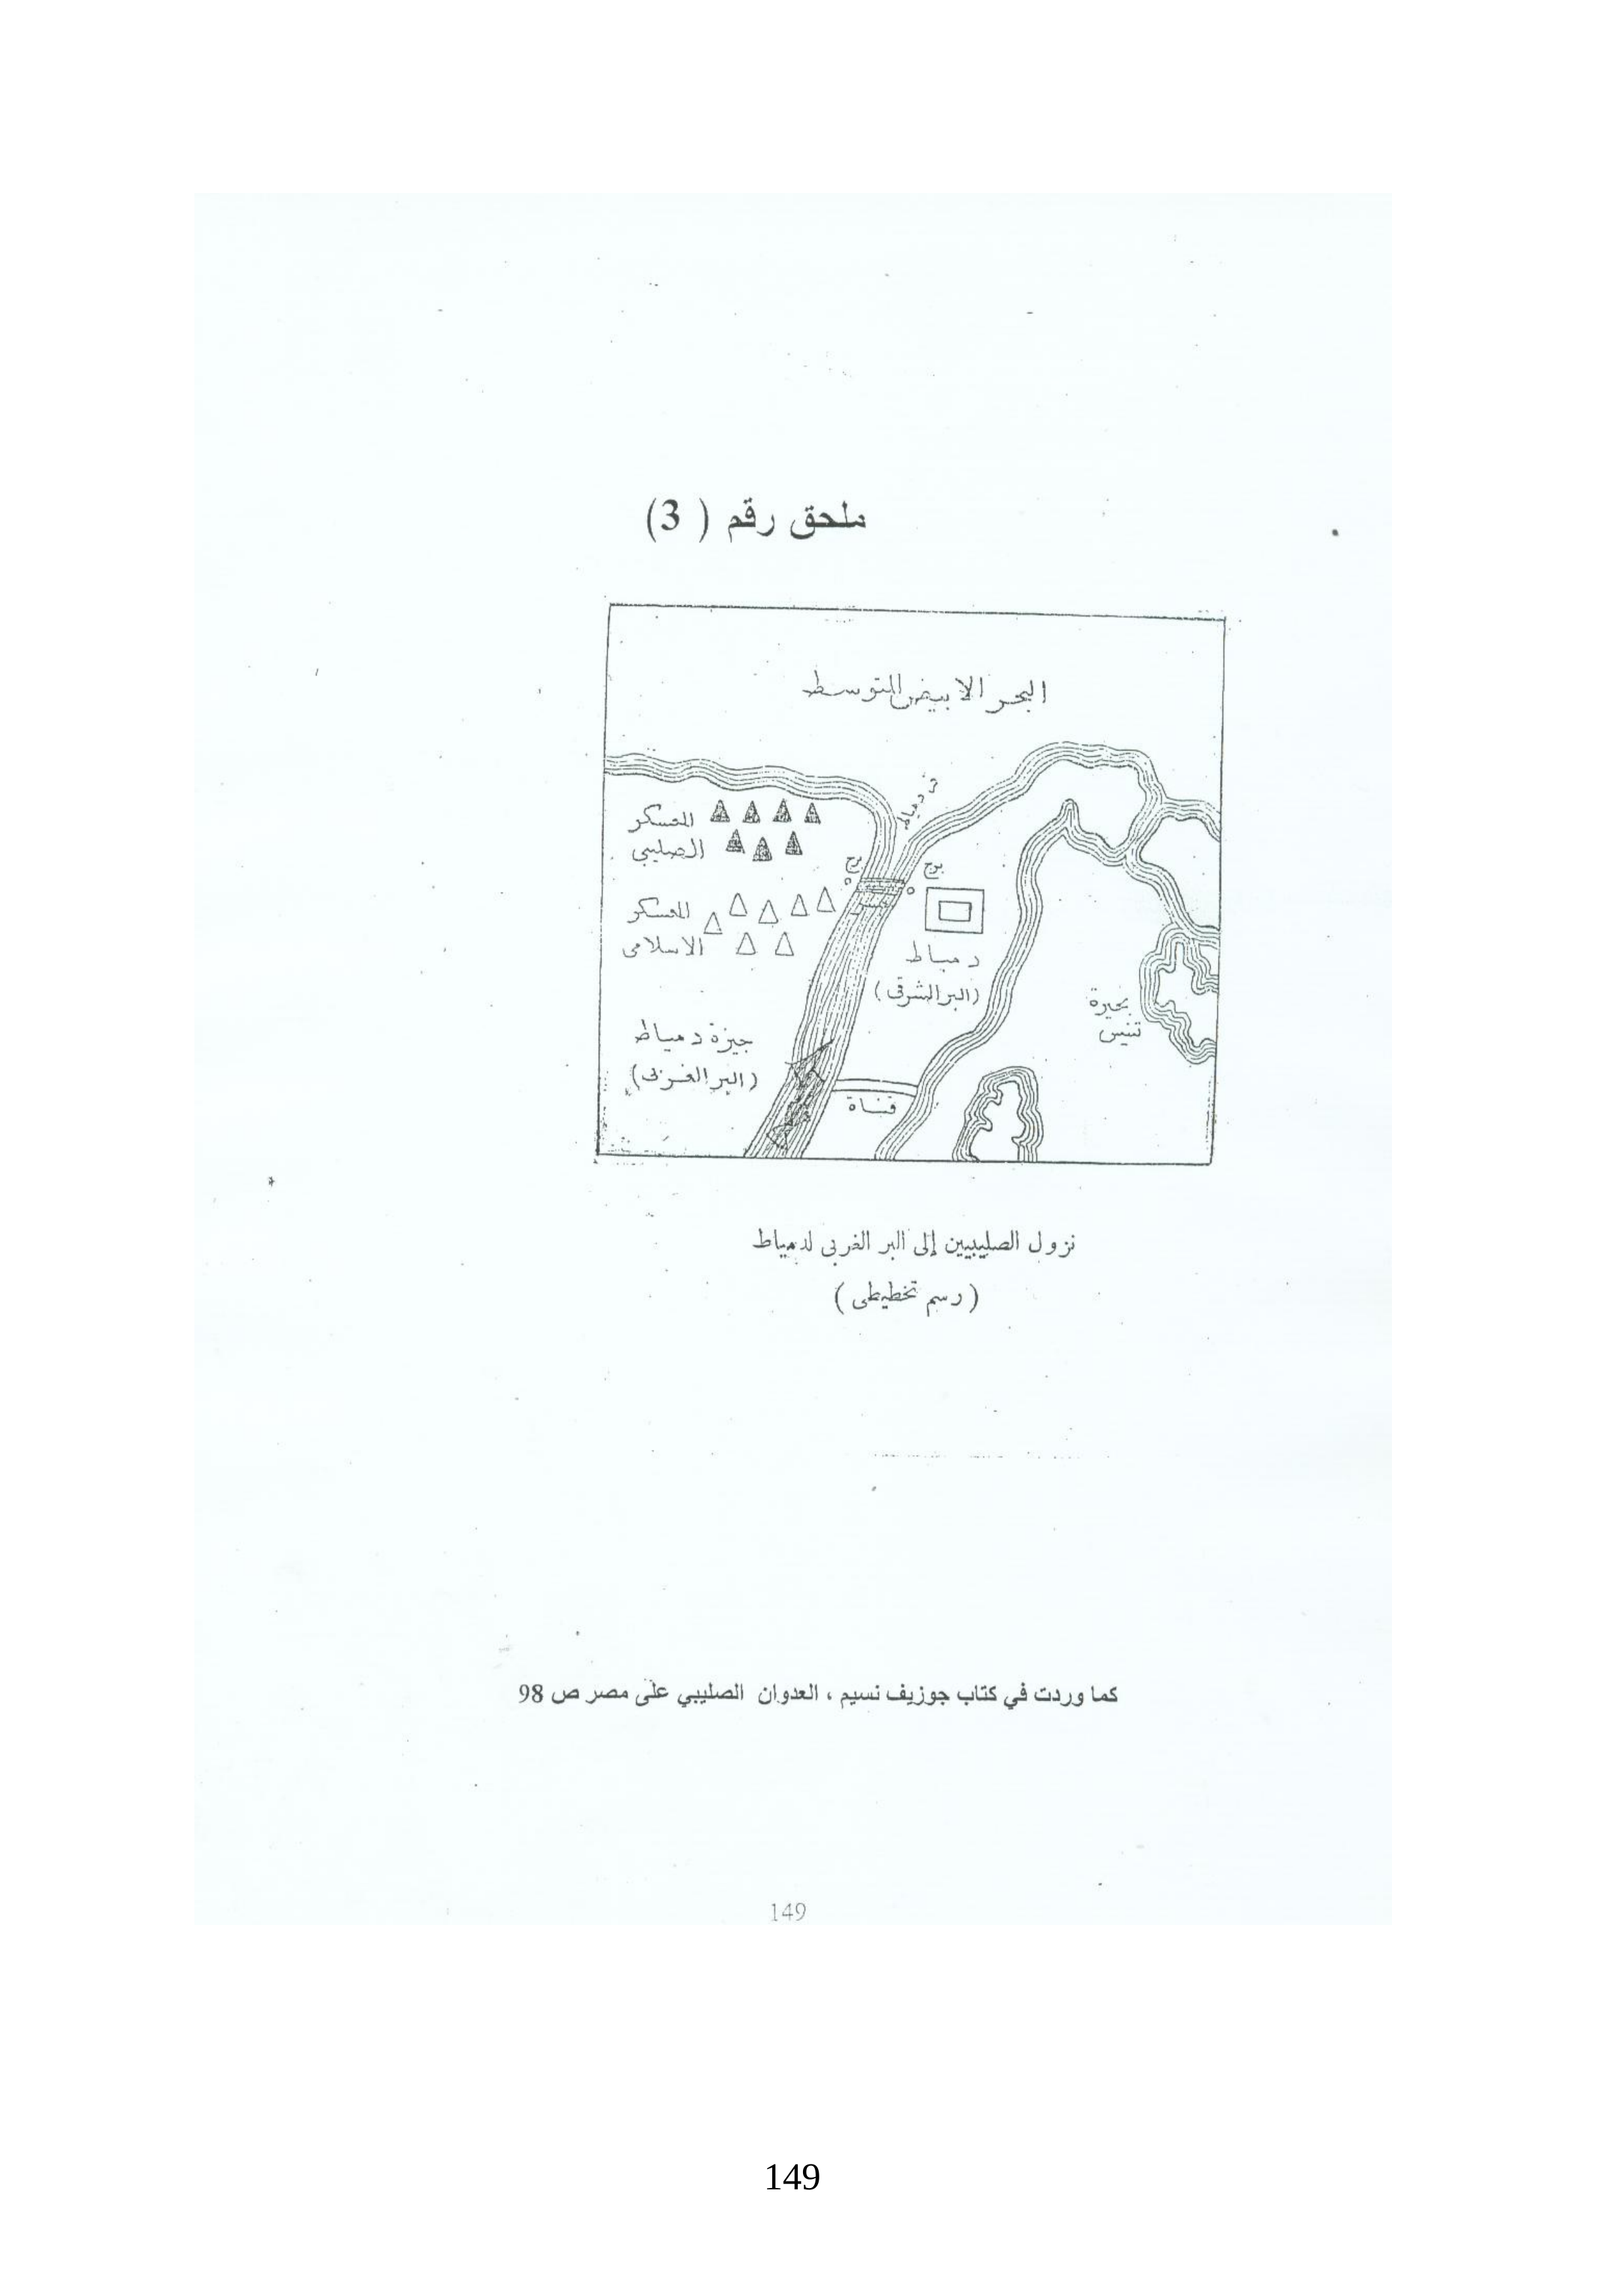 ملحق رقم ( 3)
البحر الابيض المتوسط
دمياط
المعسكر
الصليبى
برج
برج
المعسكر
الاسلامى
جسر
دمياط
(البر الشرقى)
بحيرة
تنيس
جيزة دمياط
(البر الغربى)
قناة
نزول الصليبيين إلى البر الغربى لدمياط
( رسم تخطيطى )
كما وردت في كتاب جوزيف نسيم ، العدوان الصليبي على مصر ص 98
149
149